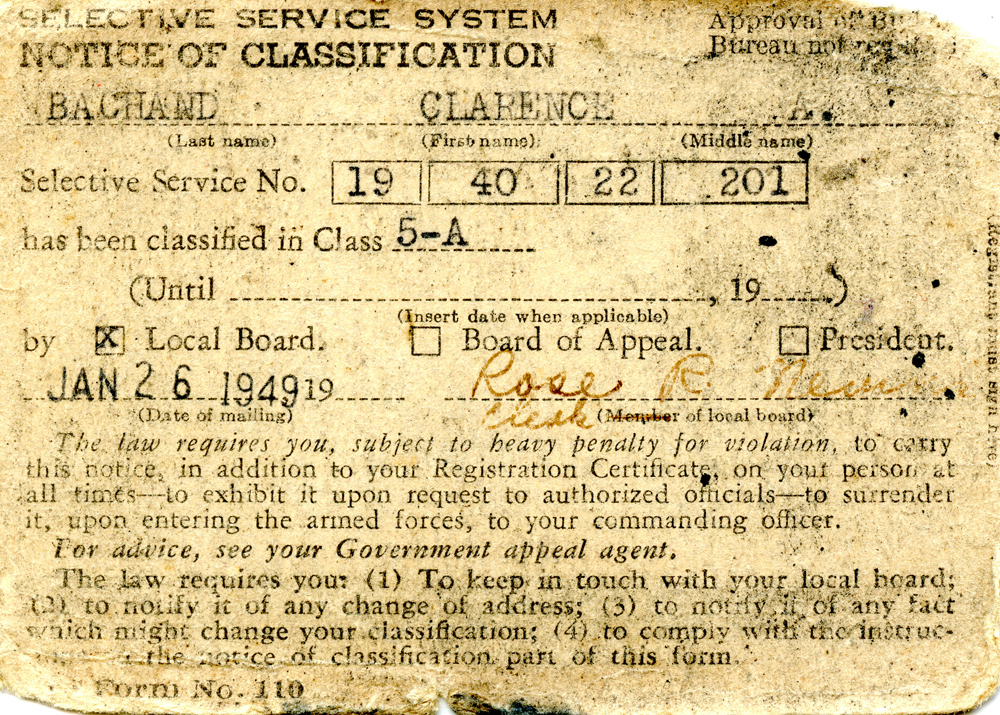 SELECTIVE SERVICE SYSTEM
NOTICE OF CLASSIFICATION
Approval of
Bureau not
BACHAND CLARENCE A.
(Last name) (First name) (Middle name)
Selective Service No. 19 40 22 201
has been classified in Class 5-A
(Until , 19 )
(Insert date when applicable)
by X Local Board. Board of Appeal. President.
JAN 26 1949 19 Rose R.
(Date of mailing) Clerk (Member of local board)
The law requires you, subject to heavy penalty for violation, to carry
this notice, in addition to your Registration Certificate, on your person at
all times—to exhibit it upon request to authorized officials—to surrender
it, upon entering the armed forces, to your commanding officer.
For advice, see your Government appeal agent.
The law requires you: (1) To keep in touch with your local board;
(2) to notify it of any change of address; (3) to notify it of any fact
which might change your classification; (4) to comply with the instruc-
the notice of classification part of this form.
Form No. 110